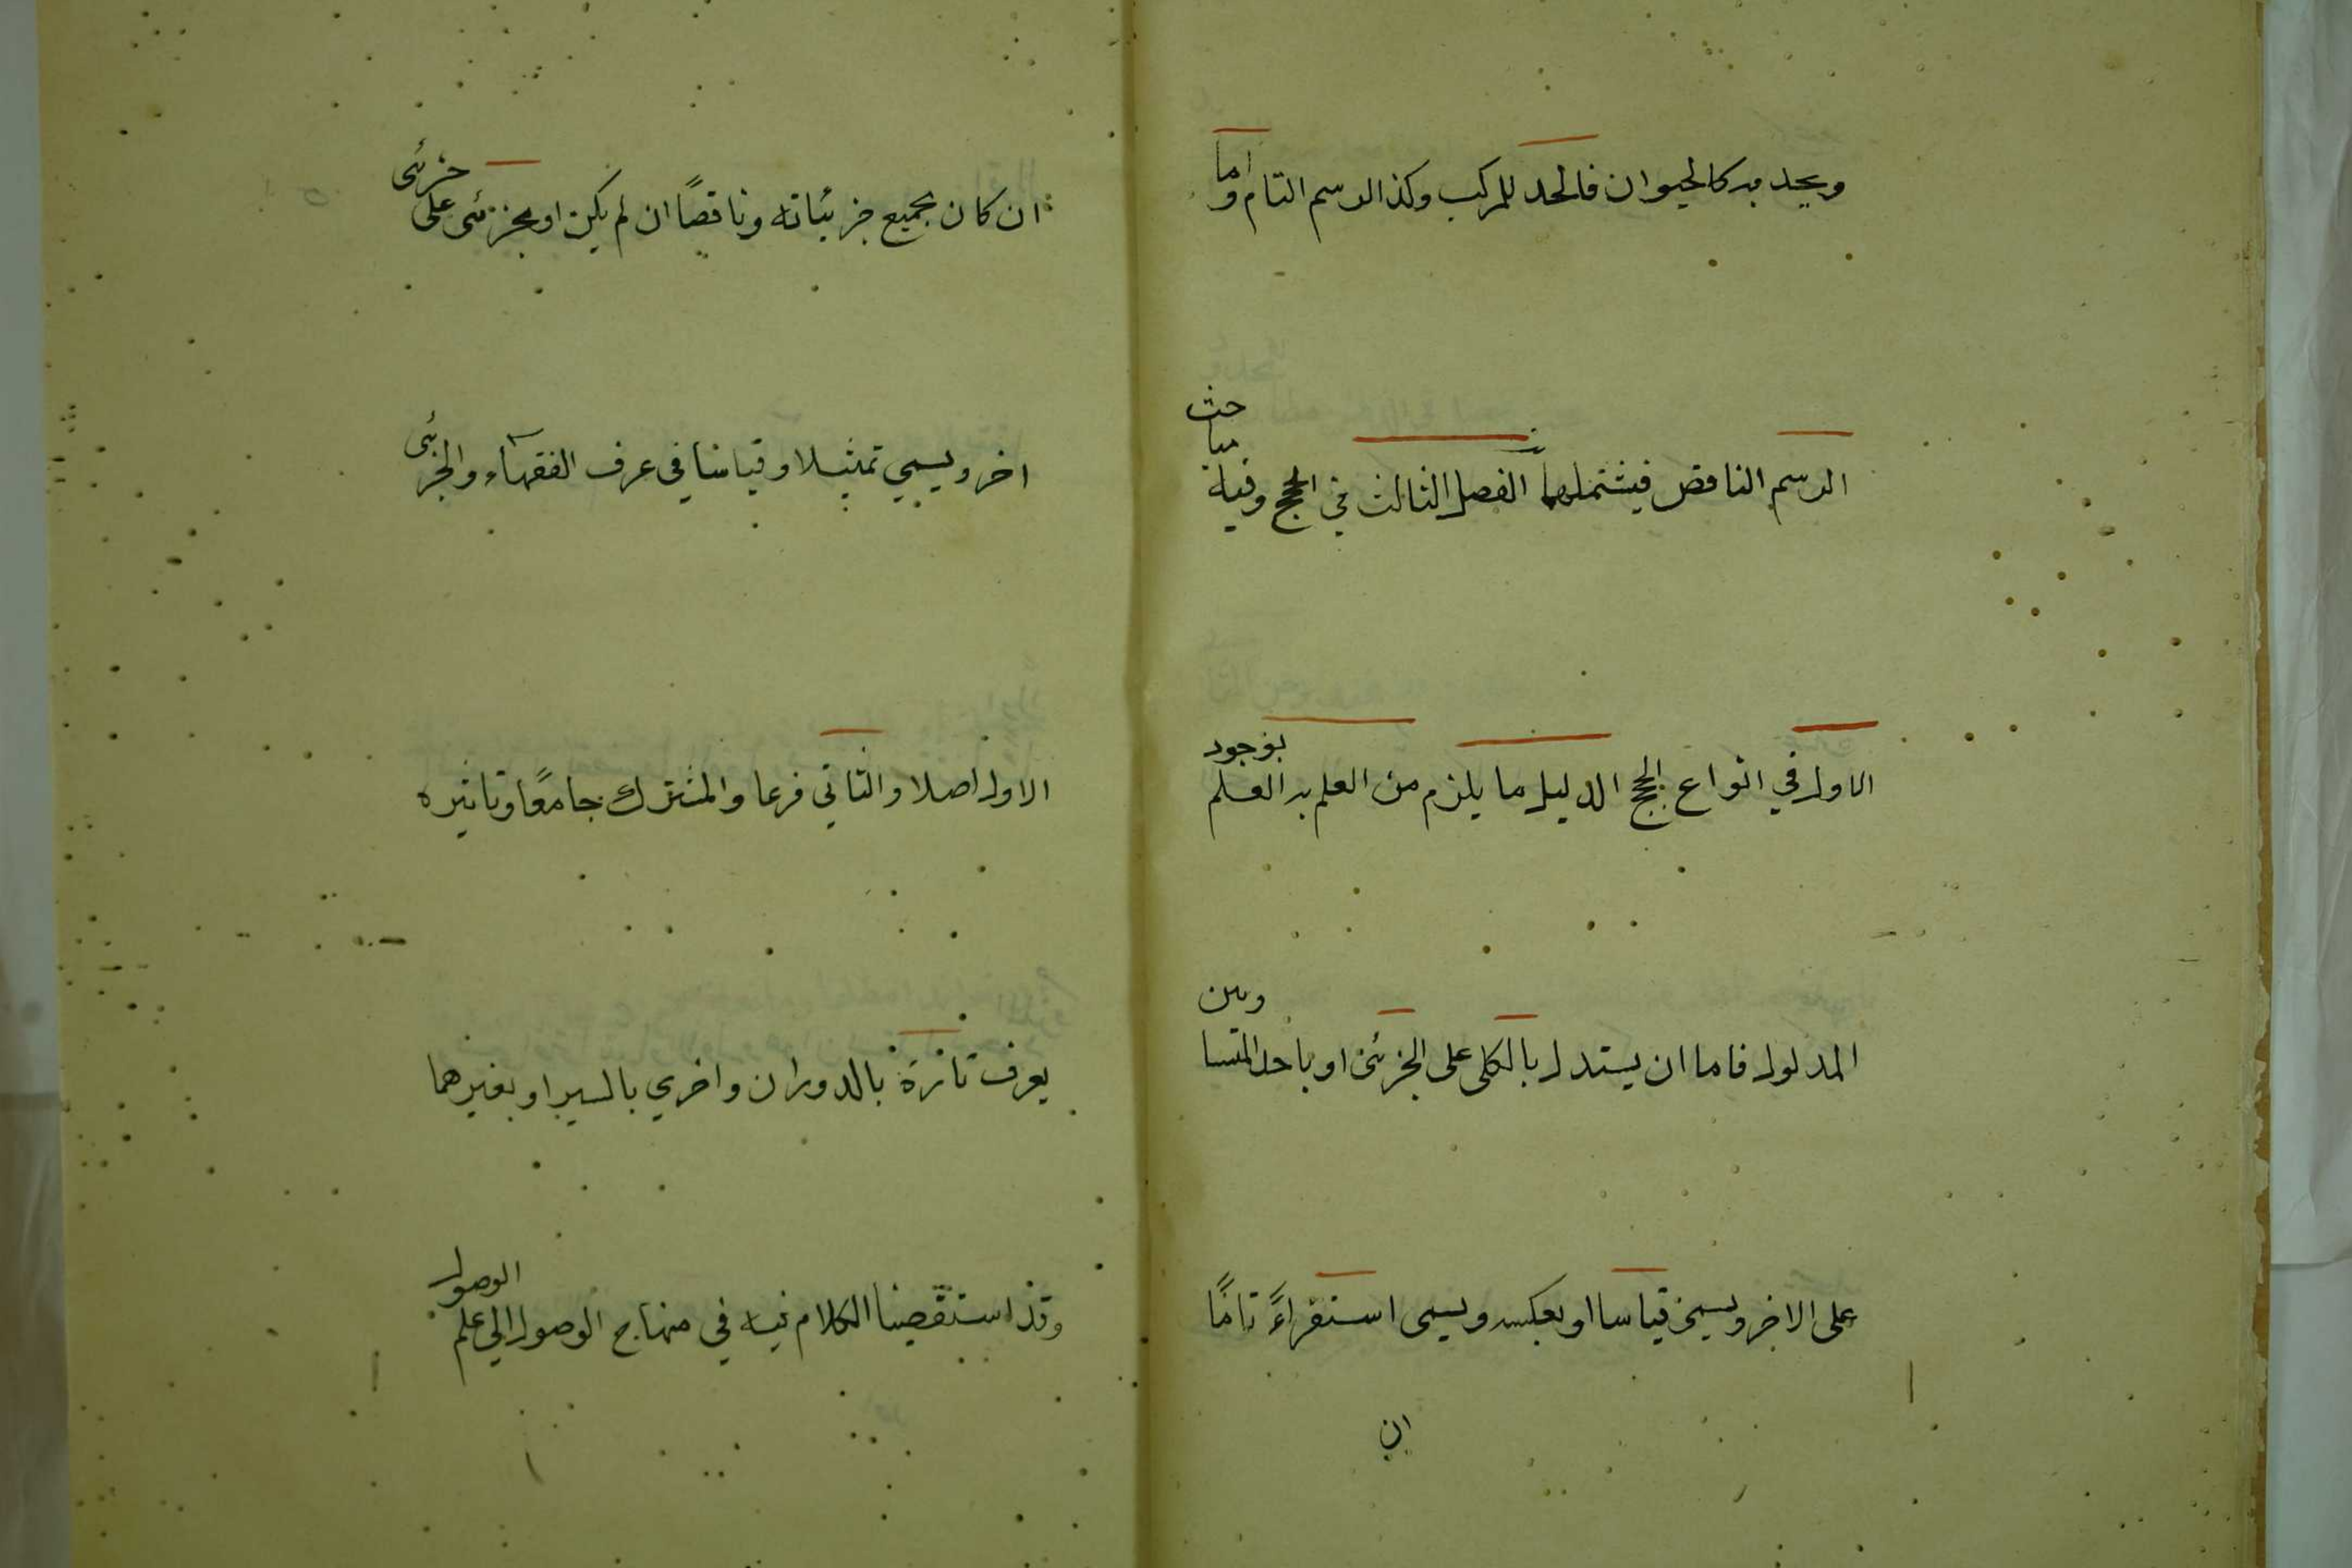 ويحد به كالحيوان فالحد للمركب وكذا الرسم التام واما
الرسم الناقص فيشتملهما الفصل الثالث في الحجج وفيه مباحث
الاول في انواع الحجج الدليل ما يلزم من العلم به العلم بوجود
المدلول فاما ان يستدل بالكلى على الجزئى او باحد المتساويين
على الاخر ويسمى قياسا او بعكسه ويسمى استقراءً تامًا
ان
ان كان بجميع جزئياته وناقصًا ان لم يكن او بجزئى على جزئى
اخر ويسمي تمثيلا وقياسا في عرف الفقهاء والجزئى
الاول اصلا والثاني فرعا والمشترك جامعًا وتاثيره
يعرف تارة بالدوران واخري بالسبر او بغيرهما
وقد استقصينا الكلام فيه في منهاج الوصول الي علم الوصول